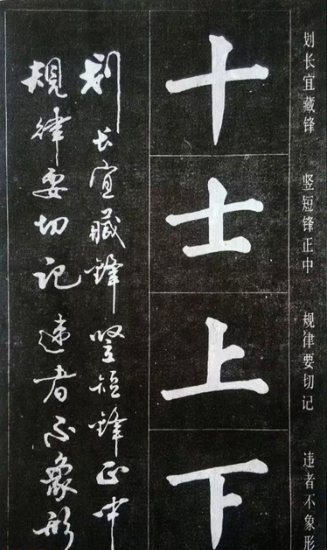 划长宜藏锋 竖短锋正中 规律要切记 违者不象形
十士上下
划长宜藏锋竖短锋正中
规律要切记违者不象形